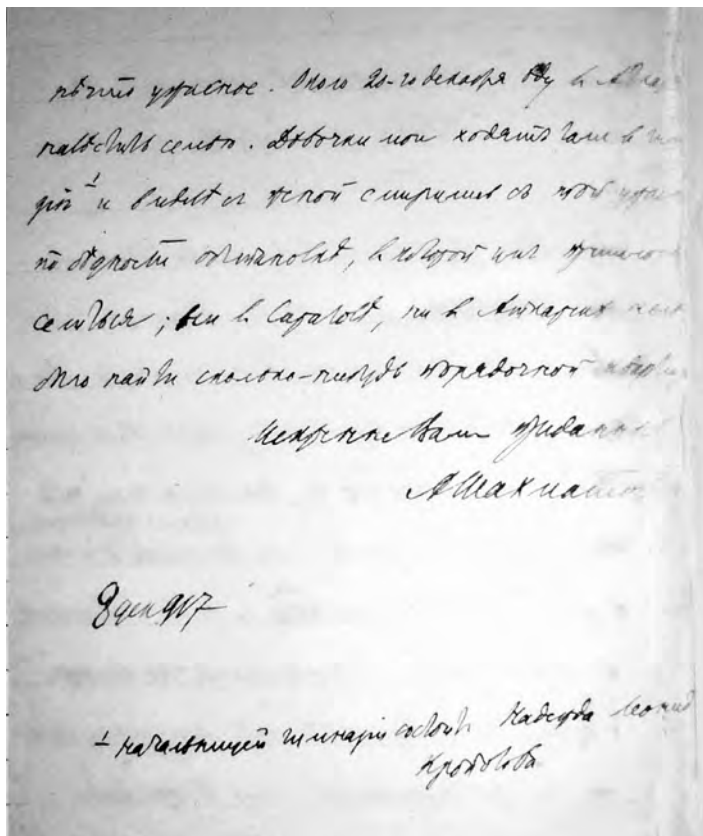 нѣчто ужасное. Около 20-го декабря ѣду в Аткар
навѣстить семью. Дѣвочки мои ходятъ там в гим
1 и вмѣстѣ с женой смирились съ той ужас
по бѣдности обстановкѣ, в которой им пришлось
селиться; ни в Саратовѣ, ни в Аткарске нель
было найти сколько-нибудь порядочной квартиры
Искренне Вам преданный
А Шахматов
8 дек 917
1 начальницей гимназіи состоитъ Надежда Леонид
Кропотова